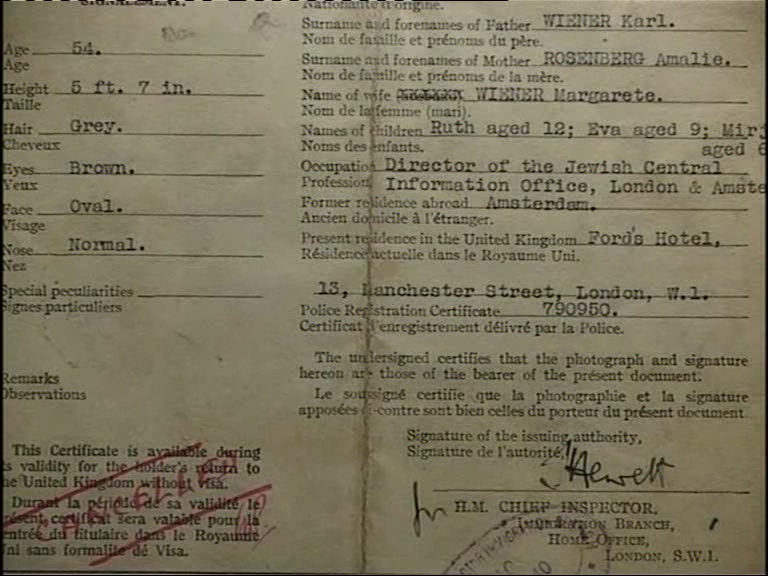 SIGNALEMENT.
Age 54.
Age
Height 5 ft. 7 in.
Taille
Hair Grey.
Cheveux
Eyes Brown.
Yeux
Face Oval.
Visage
Nose Normal.
Nez
Special peculiarities
Signes particuliers
Remarks
Observations
This Certificate is available during
its validity for the holder's return to
the United Kingdom without visa.
Durant la période de sa validité, le
présent certificat sera valable pour la
entrée du titulaire dans le Royaume
Uni sans formalité de Visa.
CANCELLED
Nationalité d'origine.
Surname and forenames of Father WIENER Karl.
Nom de famille et prénoms du père.
Surname and forenames of Mother ROSENBERG Amalie.
Nom de famille et prénoms de la mère.
Name of wife WIENER Margarete.
Nom de la femme (mari).
Names of children Ruth aged 12; Eva aged 9; Mir
Noms des enfants. aged 6
Occupation Director of the Jewish Central
Profession Information Office, London & Amste
Former residence abroad Amsterdam.
Ancien domicile à l'étranger.
Present residence in the United Kingdom Ford's Hotel,
Résidence actuelle dans le Royaume Uni.
13, Manchester Street, London, W.1.
Police Registration Certificate 790950.
Certificat d'enregistrement délivré par la Police.
The undersigned certifies that the photograph and signature
hereon are those of the bearer of the present document.
Le soussigné certifie que la photographie et la signature
apposées ci-contre sont bien celles du porteur du présent document
Signature of the issuing authority,
Signature de l'autorité,
Hewett
for H.M. CHIEF INSPECTOR,
IMMIGRATION BRANCH,
HOME OFFICE,
LONDON, S.W.1.